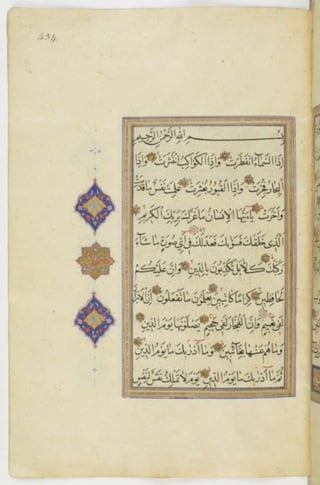 بِسْمِ اللهِ الرَّحْمٰنِ الرَّحِيمِ
إِذَا السَّمَاءُ انْفَطَرَتْ وَإِذَا الْكَوَاكِبُ انْتَثَرَتْ وَإِذَا
الْبِحَارُ فُجِّرَتْ وَإِذَا الْقُبُورُ بُعْثِرَتْ عَلِمَتْ نَفْسٌ مَا قَدَّمَتْ
وَأَخَّرَتْ يَا أَيُّهَا الْإِنْسَانُ مَا غَرَّكَ بِرَبِّكَ الْكَرِيمِ
الَّذِي خَلَقَكَ فَسَوّٰيكَ فَعَدَلَكَ فِي أَيِّ صُورَةٍ مَا شَاءَ
رَكَّبَكَ كَلَّا بَلْ تُكَذِّبُونَ بِالدِّينِ وَإِنَّ عَلَيْكُمْ
لَحَافِظِينَ كِرَامًا كَاتِبِينَ يَعْلَمُونَ مَا تَفْعَلُونَ إِنَّ الْأَبْرَارَ
لَفِي نَعِيمٍ وَإِنَّ الْفُجَّارَ لَفِي جَحِيمٍ يَصْلَوْنَهَا يَوْمَ الدِّينِ
وَمَا هُمْ عَنْهَا بِغَائِبِينَ وَمَا أَدْرٰيكَ مَا يَوْمُ الدِّينِ
ثُمَّ مَا أَدْرٰيكَ مَا يَوْمُ الدِّينِ يَوْمَ لَا تَمْلِكُ نَفْسٌ لِنَفْسٍ